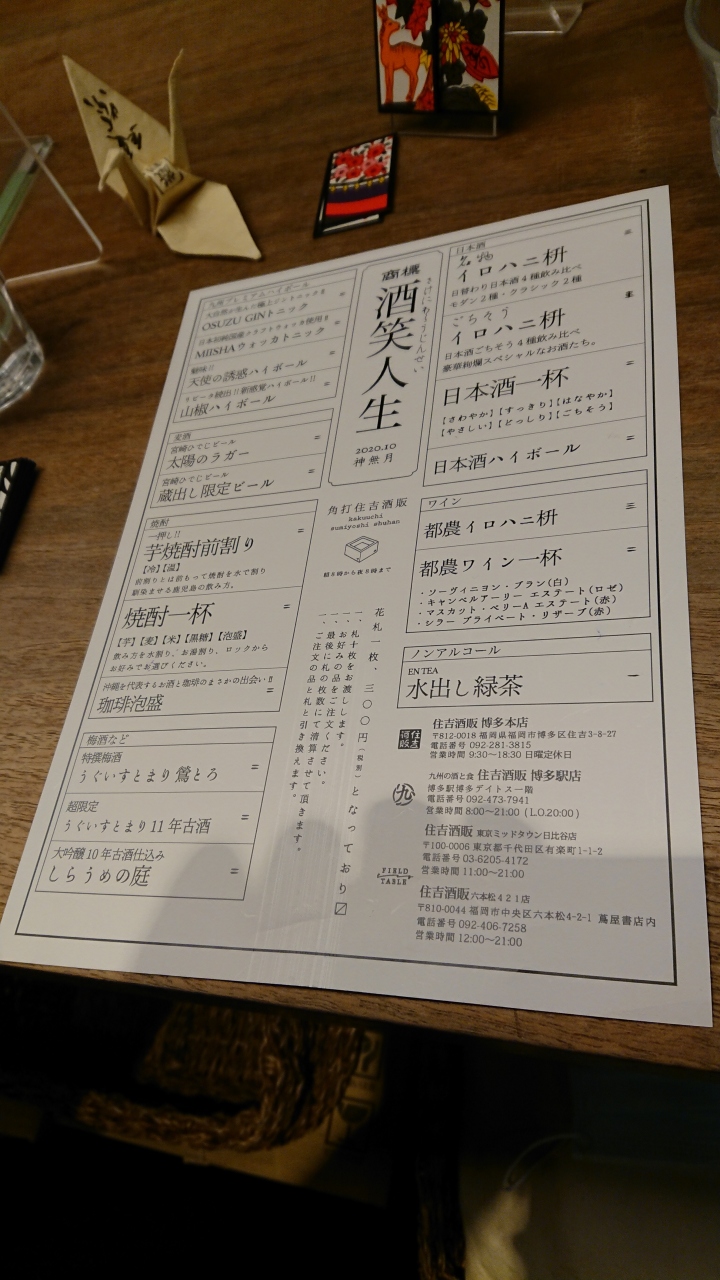 日本酒
名物
イロハニ枡
二
日替わり日本酒4種飲み比べ
モダン2種・クラシック2種
ごちそう
イロハニ枡
日本酒ごちそう4種飲み比べ
豪華絢爛スペシャルなお酒たち。
日本酒一杯
二
【さわやか】【すっきり】【はなやか】
【やさしい】【どっしり】【ごちそう】
日本酒ハイボール
二
ワイン
都農イロハニ枡
三
都農ワイン一杯
二
・ソーヴィニヨン・ブラン(白)
・キャンベルアーリー エステート(ロゼ)
・マスカット・ベリーA エステート(赤)
・シラー プライベート・リザーブ(赤)
ノンアルコール
EN TEA
水出し緑茶
一
商標
酒笑人生
さけにわらうじんせい
2020.10
神無月
角打住吉酒販
kakuuchi
sumiyoshi shuhan
朝8時から夜9時まで
花札一枚、三〇〇円(税別)となっており〼
一、札十枚をお渡しします。
一、お好みの品をご注文ください。
一、最後に札の枚数にて清算させて頂きます。
一、ご注文の品と札と引き換えます。
九州プレミアムハイボール
大自然が生んだ極上ジントニック!!
OSUZU GINトニック
二
日本初純国産クラフトウォッカ使用!!
MIISHAウォッカトニック
二
天使の誘惑ハイボール
二
リピート続出!!新感覚ハイボール!!
山椒ハイボール
二
麦酒
宮崎ひでじビール
太陽のラガー
二
宮崎ひでじビール
蔵出し限定ビール
二
焼酎
一押し!!
芋焼酎前割り
二
【冷】【温】
前割りとは前もって焼酎を水で割り
馴染ませる鹿児島の飲み方。
焼酎一杯
二
【芋】【麦】【米】【黒糖】【泡盛】
飲み方を水割り、お湯割り、ロックから
お好みでお選びください。
沖縄を代表するお酒と珈琲のまさかの出会い!!
珈琲泡盛
二
梅酒など
特撰梅酒
うぐいすとまり 鶯とろ
二
超限定
うぐいすとまり 11年古酒
二
大吟醸10年古酒仕込み
しらうめの庭
二
住吉酒販
住吉酒販 博多本店
〒812-0018 福岡県福岡市博多区住吉3-8-27
電話番号 092-281-3815
営業時間 9:30〜18:30 日曜定休日
九
九州の酒と食 住吉酒販 博多駅店
博多駅博多デイトス一階
電話番号 092-473-7941
営業時間 8:00〜21:00 (L.O.20:00)
住吉酒販 東京ミッドタウン日比谷店
〒100-0006 東京都千代田区有楽町1-1-2
電話番号 03-6205-4172
営業時間 11:00〜21:00
FIELD
TABLE
住吉酒販 六本松421店
〒810-0044 福岡市中央区六本松4-2-1 蔦屋書店内
電話番号 092-406-7258
営業時間 12:00〜21:00